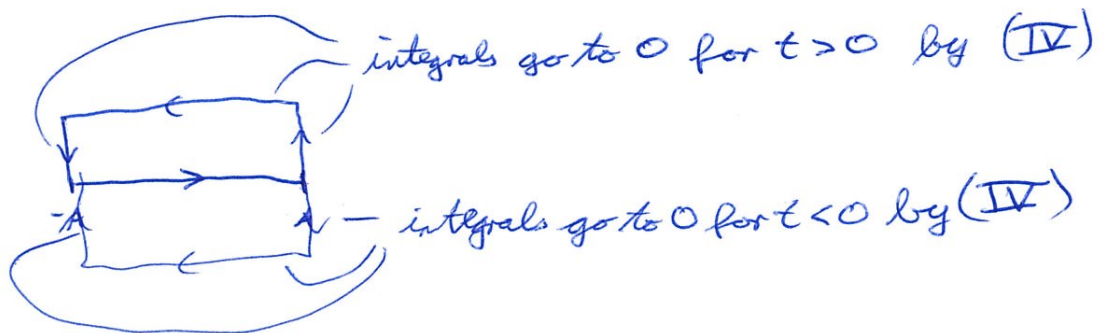 integrals go to 0 for t > 0 by (IV)
integrals go to 0 for t < 0 by (IV)